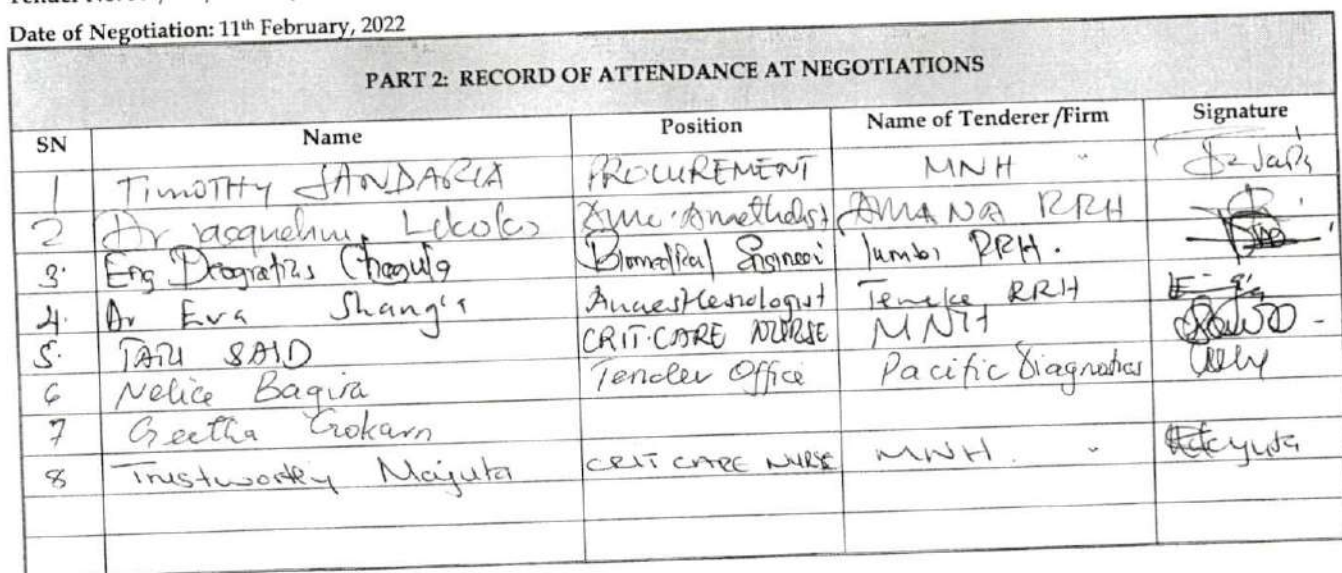 Date of Negotiation: 11th February, 2022
PART 2: RECORD OF ATTENDANCE AT NEGOTIATIONS
SN Name Position Name of Tenderer/Firm Signature
1 TIMOTHY JANDARIA PROCUREMENT MNH
2 Dr Jacqueline AMANA RRH
3. Eng Deogratias Chagula Biomedical Engineer Tumbi RRH.
4. Dr Eva Shang'a Anaesthesiologist Temeke RRH
5. TATU SAID CRIT. CARE NURSE MNH
6 Nelice Bagira Tender Office Pacific Diagnostics
7 Geetha Gokarn
8 Trustworthy Majuta CRIT CARE NURSE MNH.